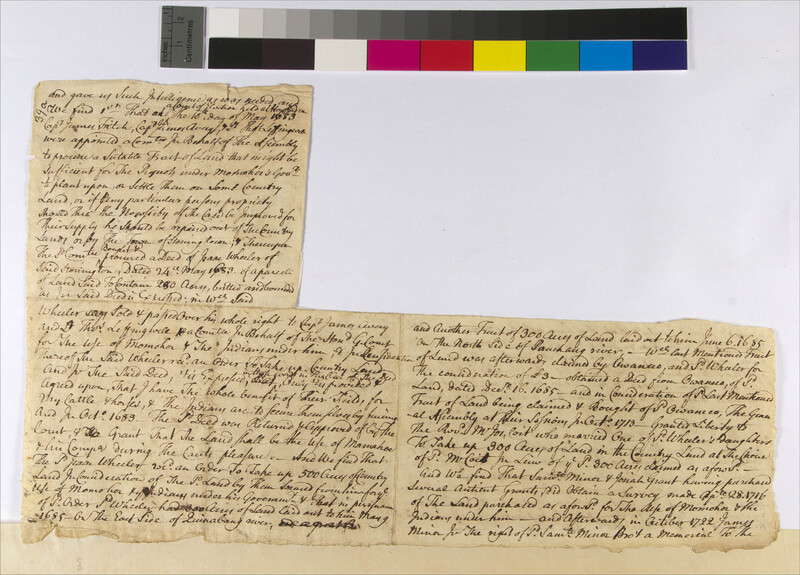 and gave us Such Intelligence as was needed,
We find 1st That on The 10th day of May 1683
Capt James Fitch, Capt James Avery, & Lt Tho: Leffingwell
were appointed a Comtte In Behalf of The Assembly
to procure a Sutable Tract of Land that might be
Sufficient for The Pequots under Momohor's Govmt
to plant upon, or Settle Them on Some Country
Land, or if Any particular persons propriety
Should thro the Necessity of The Case be Improved for
Their Supply he Should be repaired out of The Country
Lands or by The Town of Stonington, & Thereupon
The sd Comtte procured a Deed of Isaac Wheeler of
Said Stonington, Dated 24th May 1683 of a parcell
of Land Said to Contain 280 Acres, butted and bounded
as in Said Deed is Expressed; in Wch Said
Wheeler says Sold & passed over his whole right to Capt James Avery
and Lt Tho: Leffingwell a Comtte In Behalf of The Hond G: Court
for The use of Momohor & The Indians under him, & in Consideration
Thereof The Said Wheeler recd an Order To Take up Country Land
And In The Said Deed 'tis Expressed,
agreed upon, That I have The whole benefit of Their Fields, for
my Cattle & horses, & The Indians are to Secure Themselves by fencing
And In Octr 1683 The sd Deed was Returned & approved of by The
Court & Do Grant That the Land Shall be the use of Mamohoe
& his Compa during the Courts pleasure – And We find That
The sd Isaac Wheeler recd an Order To Take up 500 Acres of Country
Land In Consideration of The sd Land by them Secured from him for ye
Use of Momohor & ye Indians under his Goverment & that in pursuance
of sd Order sd Wheeler had Acres of Land laid out to him May 9
1685 – On the East Side of Quinabaug river,
and Another Tract of 300 Acres of Land laid out to him June 6. 1685
on The North Side of Pauchaug river, – Wch Last Mentioned Tract
of Land was afterwards claimed by Owaneco, and sd Wheeler for
The Consideration of £3 – obtained a Deed from Owaneco, of sd
Land, dated Decr 16. 1685 – and in Consideration of sd Last Mentioned
Tract of Land being claimed & Bought of sd Owaneco, The Gener
al Assembly at Their Session in Octr 1713 – Granted Liberty to
The Revd Mr Jos: Coit who married One of sd Wheeler's Daughters
To Take up 300 Acres of Land in the Country Land at The Choice
of sd Mr Coit in Lieu of ye sd 300 Acres claimed as aforesd –
And We find That Samll Minor & Josiah Grant having purchased
Several Antient Grants, did Obtain a Survey made Apr 28. 1716
of The Land purchased as aforesd for The Use of Momohor & the
Indians under him – and Afterwards in October 1722 James
Minor In The right of sd Samll Minor Brot a Memorial To the